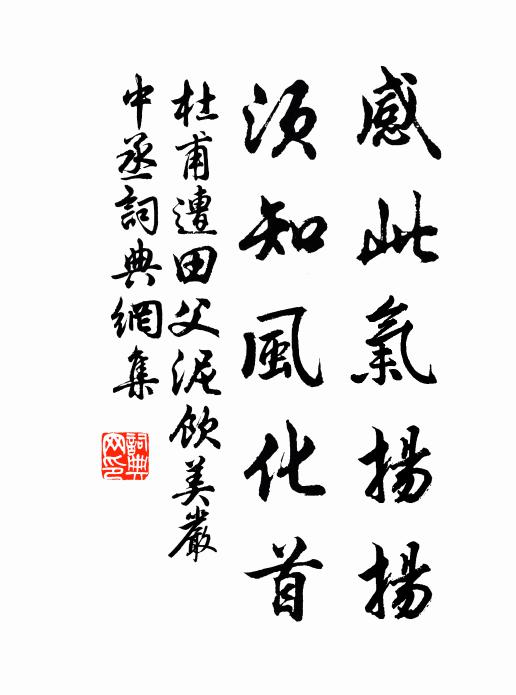 感此氣揚揚
須知風化首
杜甫遭田父泥飲美嚴
中丞詞典網集
詞典網印